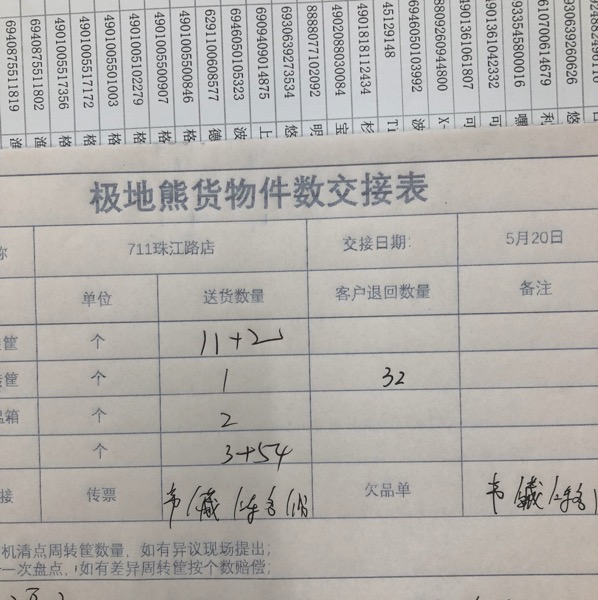 930639260626 悠
610700614679 利
933545800016 嘿
4901361042332 可
4901361061807 可
8809260944800 X-
6946050103992 波
45129148 T1
4901818112434 杉
4902088030084 宝
8888077102092
6930639273534 悠
6909409014875 上
6946050105323 波
6291100608577 德
4901005500846 格
4901005500907 格
4901005102279 格
4901005501003 格
4901005517172 格
4901005517356 格
6940875511802
6940875511819
极地熊货物件数交接表
称 711珠江路店 交接日期: 5月20日
单位 送货数量 客户退回数量 备注
筐 个 11+2
筐 个 1 32
温箱 个 2
个 3+54
接 传票 欠品单
机清点周转筐数量，如有异议现场提出;
一次盘点，如有差异周转筐按个数赔偿;